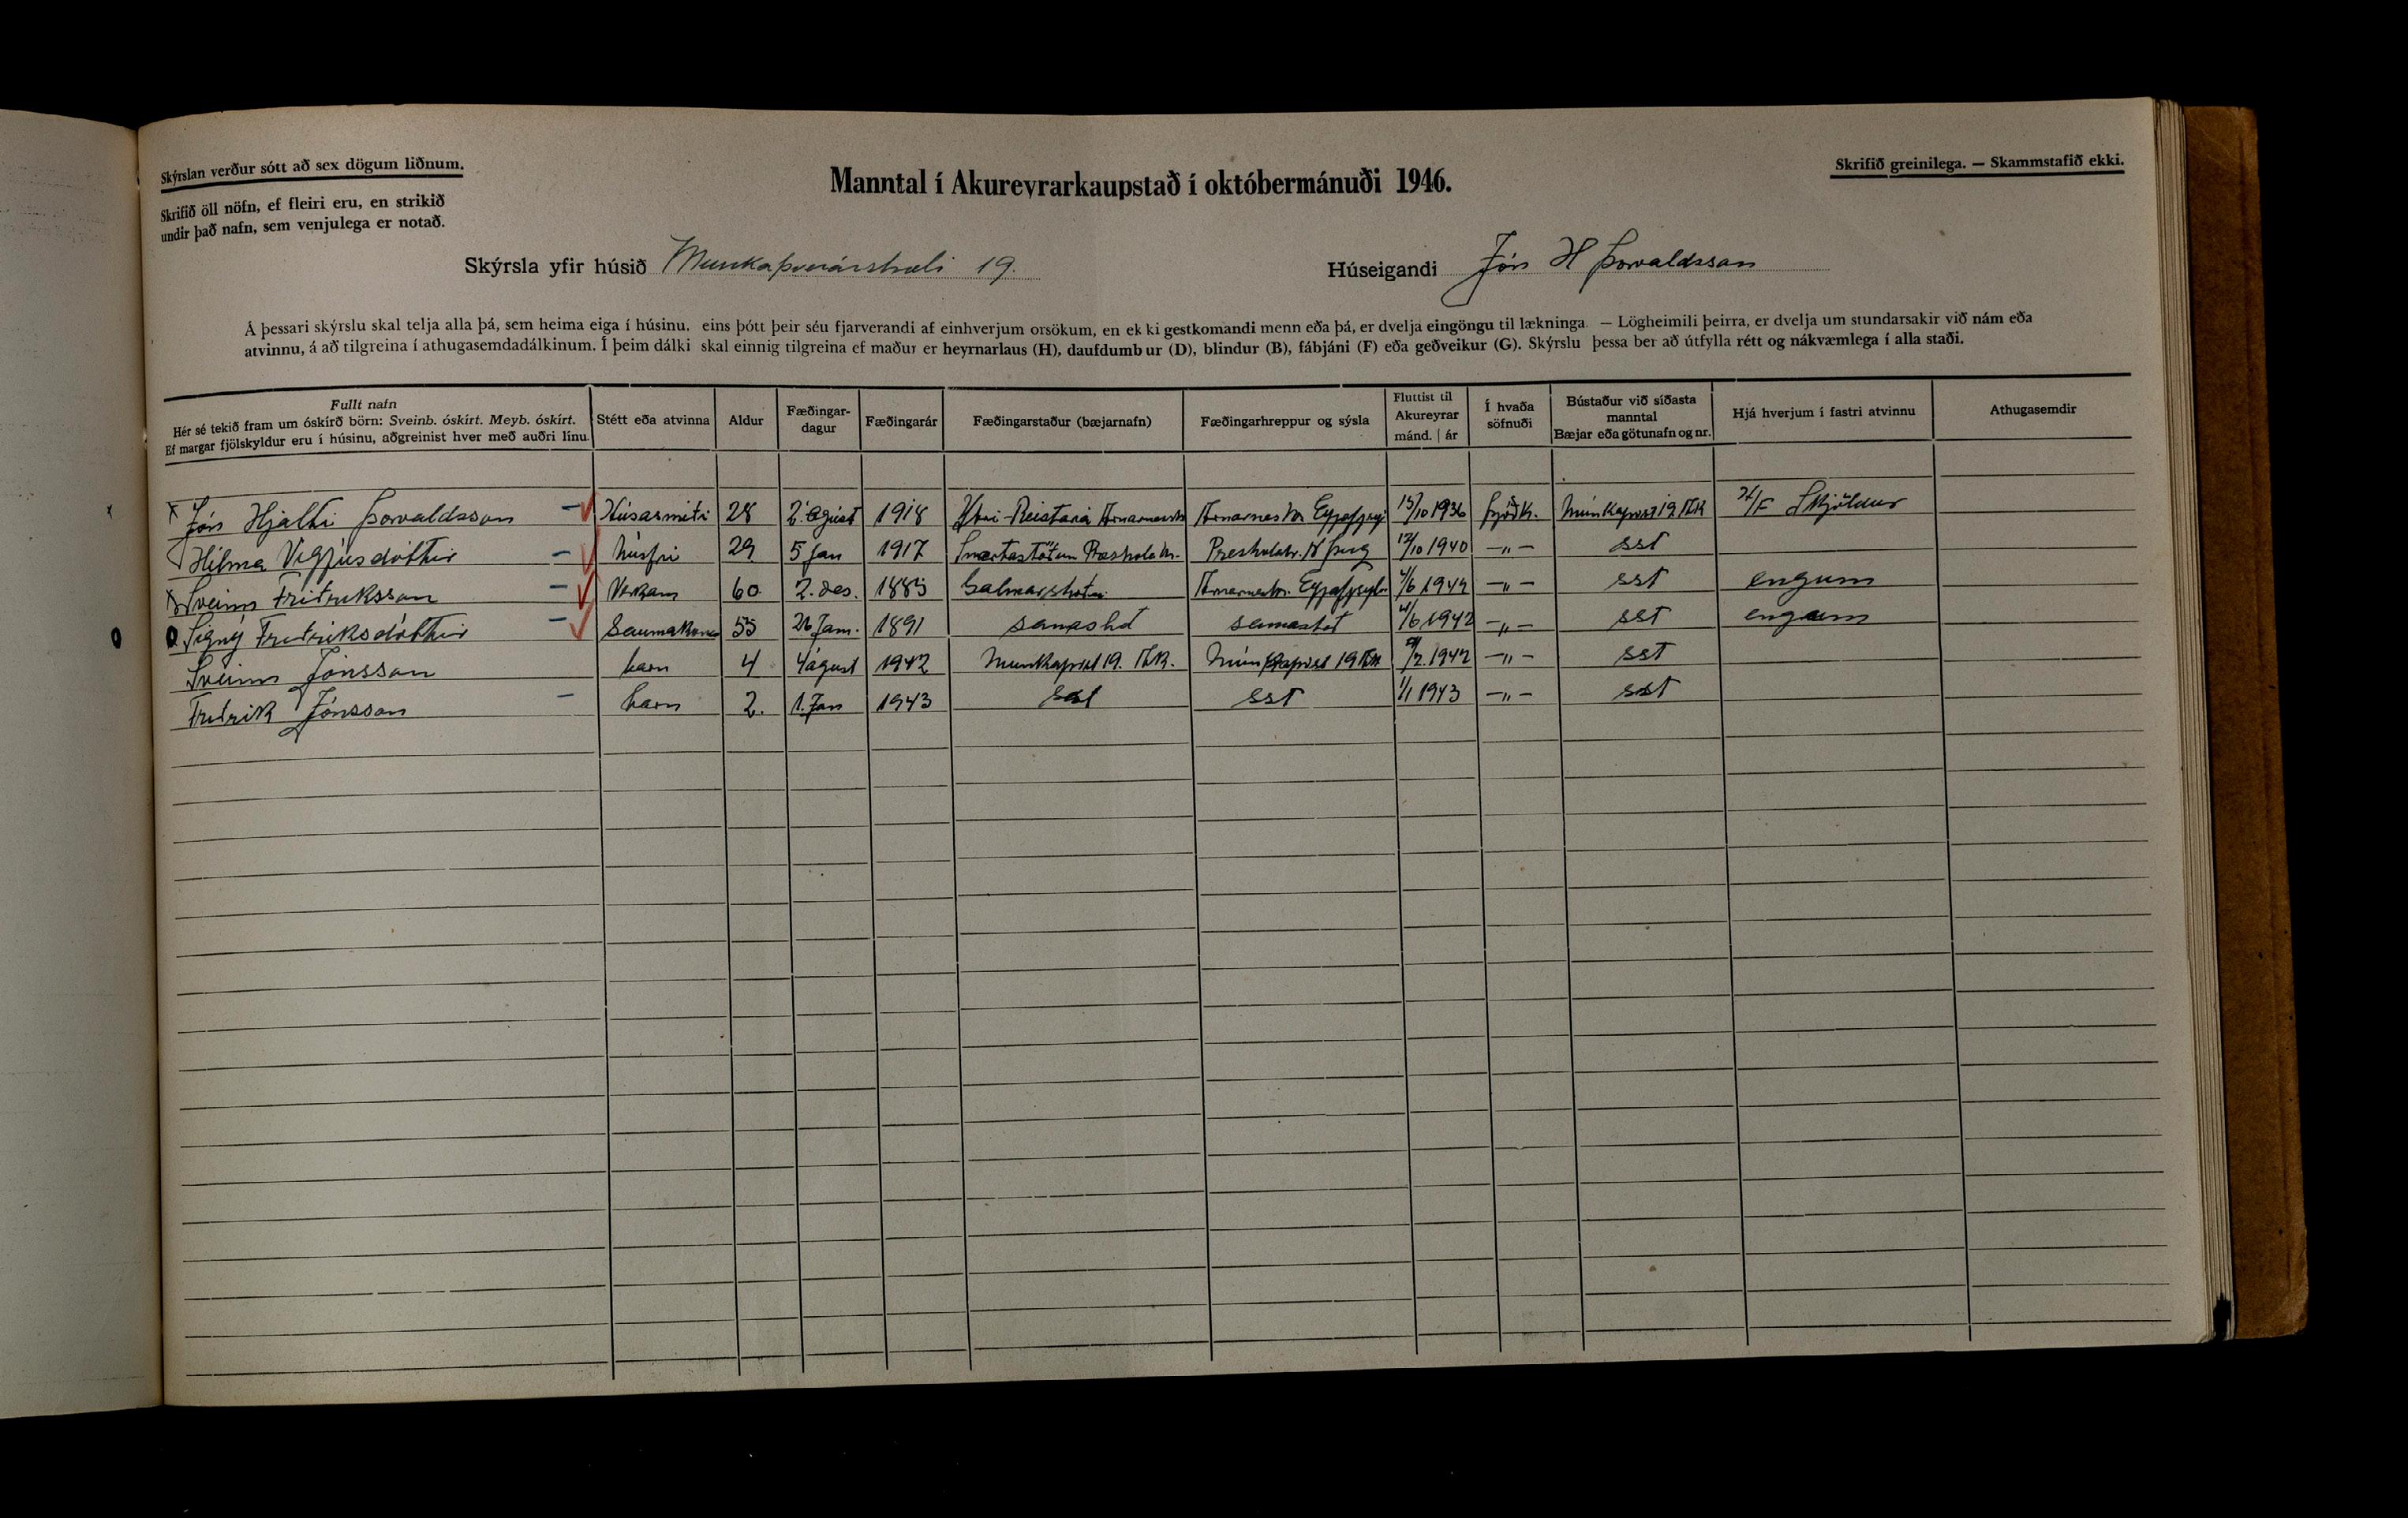 Skýrslan verður sótt að sex dögum liðnum.
Skrifið öll nöfn, ef fleiri eru, en strikið
undir það nafn, sem venjulega er notað.
Manntal í Akureyrarkaupstað í októbermánuði 1946.
Skrifið greinilega. — Skammstafið ekki.
Skýrsla yfir húsið Munkaþverárstræti 19.
Húseigandi Jón H Þorvaldsson
Á þessari skýrslu skal telja alla þá, sem heima eiga í húsinu, eins þótt þeir séu fjarverandi af einhverjum orsökum, en ekki gestkomandi menn eða þá, er dvelja eingöngu til lækninga. — Lögheimili þeirra, er dvelja um stundarsakir við nám eða
atvinnu, á að tilgreina í athugasemdadálkinum. Í þeim dálki skal einnig tilgreina ef maður er heyrnarlaus (H), daufdumbur (D), blindur (B), fábjáni (F) eða geðveikur (G). Skýrslu þessa ber að útfylla rétt og nákvæmlega í alla staði.
Fullt nafn
Hér sé tekið fram um óskírð börn: Sveinb. óskírt. Meyb. óskírt.
Ef margar fjölskyldur eru í húsinu, aðgreinist hver með auðri línu.
Stétt eða atvinna
Aldur
Fæðingar-
dagur
Fæðingarár
Fæðingarstaður (bæjarnafn)
Fæðingarhreppur og sýsla
Fluttist til
Akureyrar
mánd. | ár
Í hvaða
söfnuði
Bústaður við síðasta
manntal
Bæjar eða götunafn og nr.
Hjá hverjum í fastri atvinnu
Athugasemdir
Jón Hjalti Þorvaldsson Húsasmíði 28 2. ágúst 1918 Ytri-Reistará 15/10 1936 þjóðk. H/F Skjöldur
Hilma Vigfúsdóttir húsfrú 29 5 Jan 1917 12/10 1940 —„— sst
Sveinn Friðriksson Verkam 60 2. des. 1885 —„— sst engum
Signý Friðriksdóttir Saumakona 55 26 Jan. 1891 samastað samastað 4/6 1942 —„— sst engum
Sveinn Jónsson barn 4 4 ágúst 1942 Munkaþvst 19. Ak. 1942 —„— sst
Friðrik Jónsson barn 2. 1. Jan 1943 sst sst 1/1 1943 —„— sst